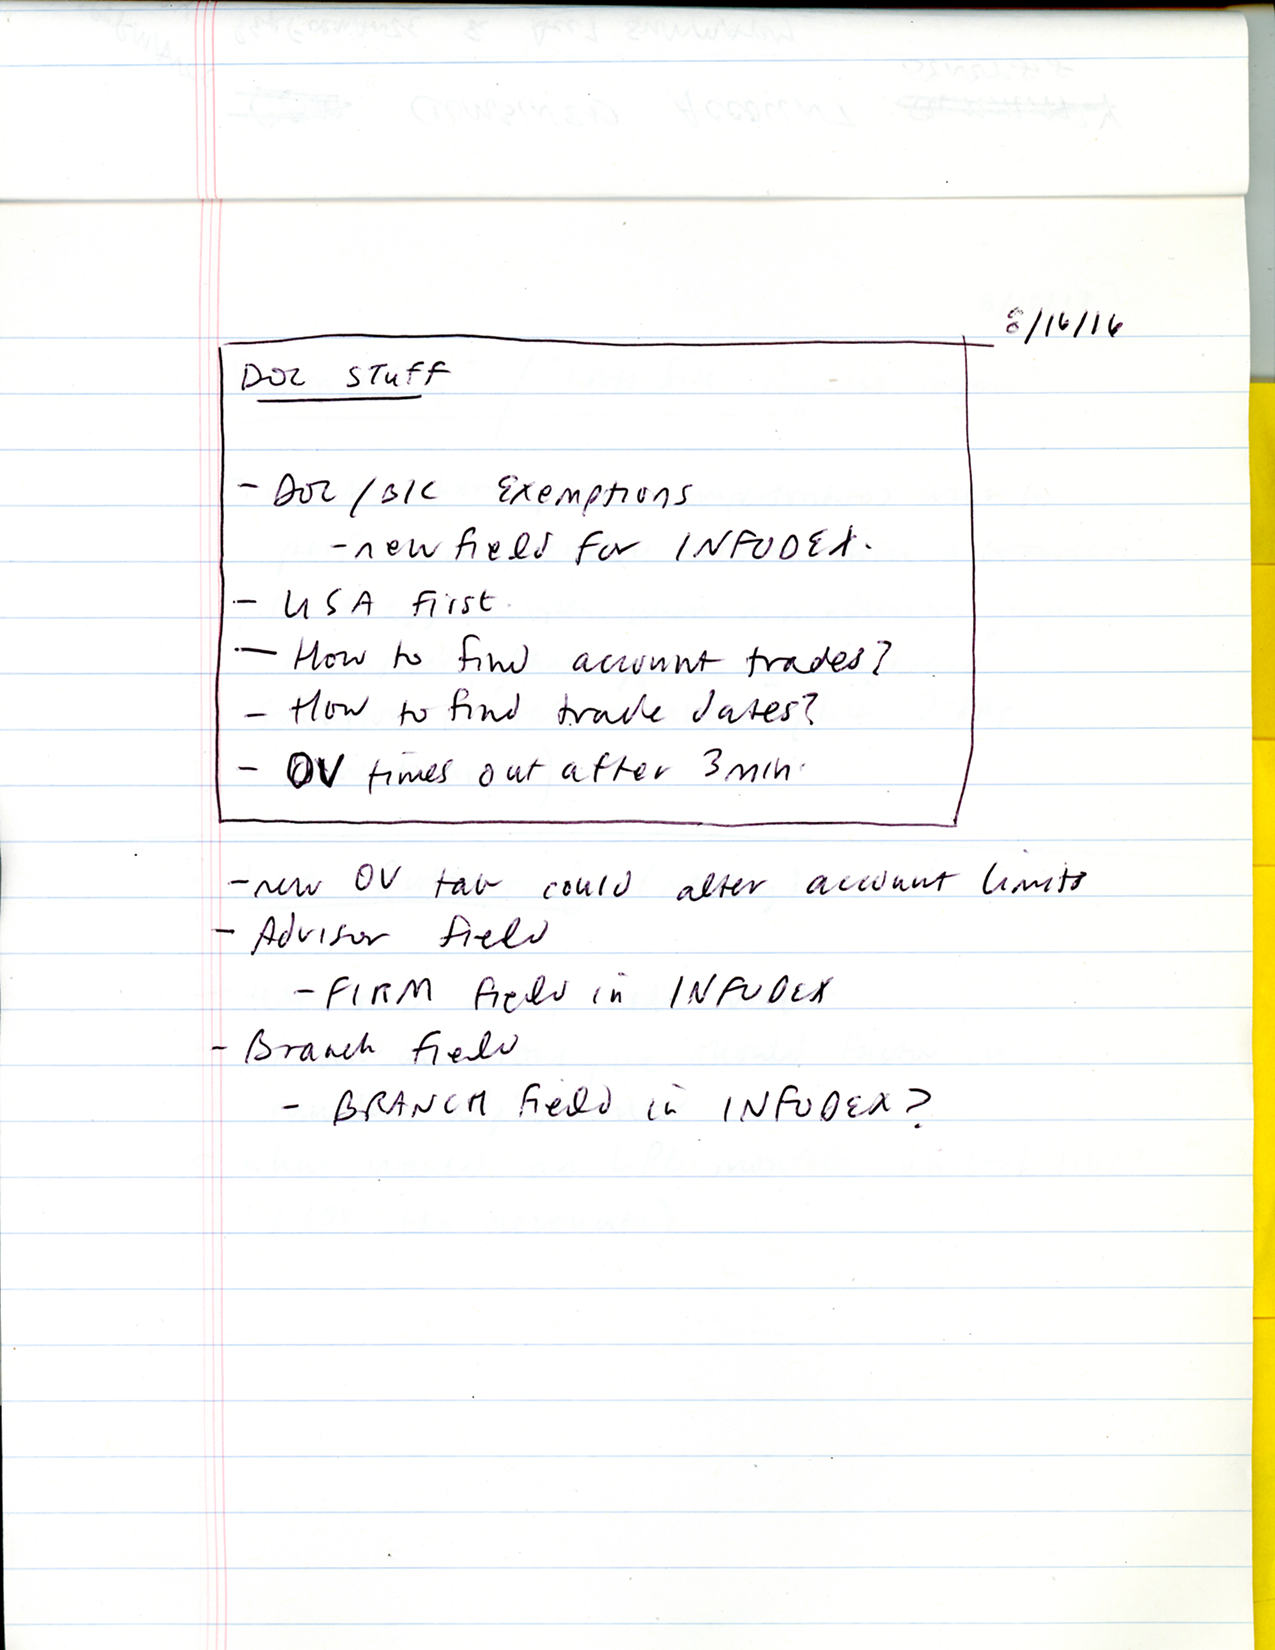 8/16/16
DOL STUFF
- DOL/BIC Exemptions
- new field for INFODEX.
- USA first.
- How to find account trades?
- How to find trade dates?
- OV times out after 3 min.
- new OV tab could alter account limits
- Advisor field
- FIRM field in INFODEX
- Branch field
- BRANCH field in INFODEX?